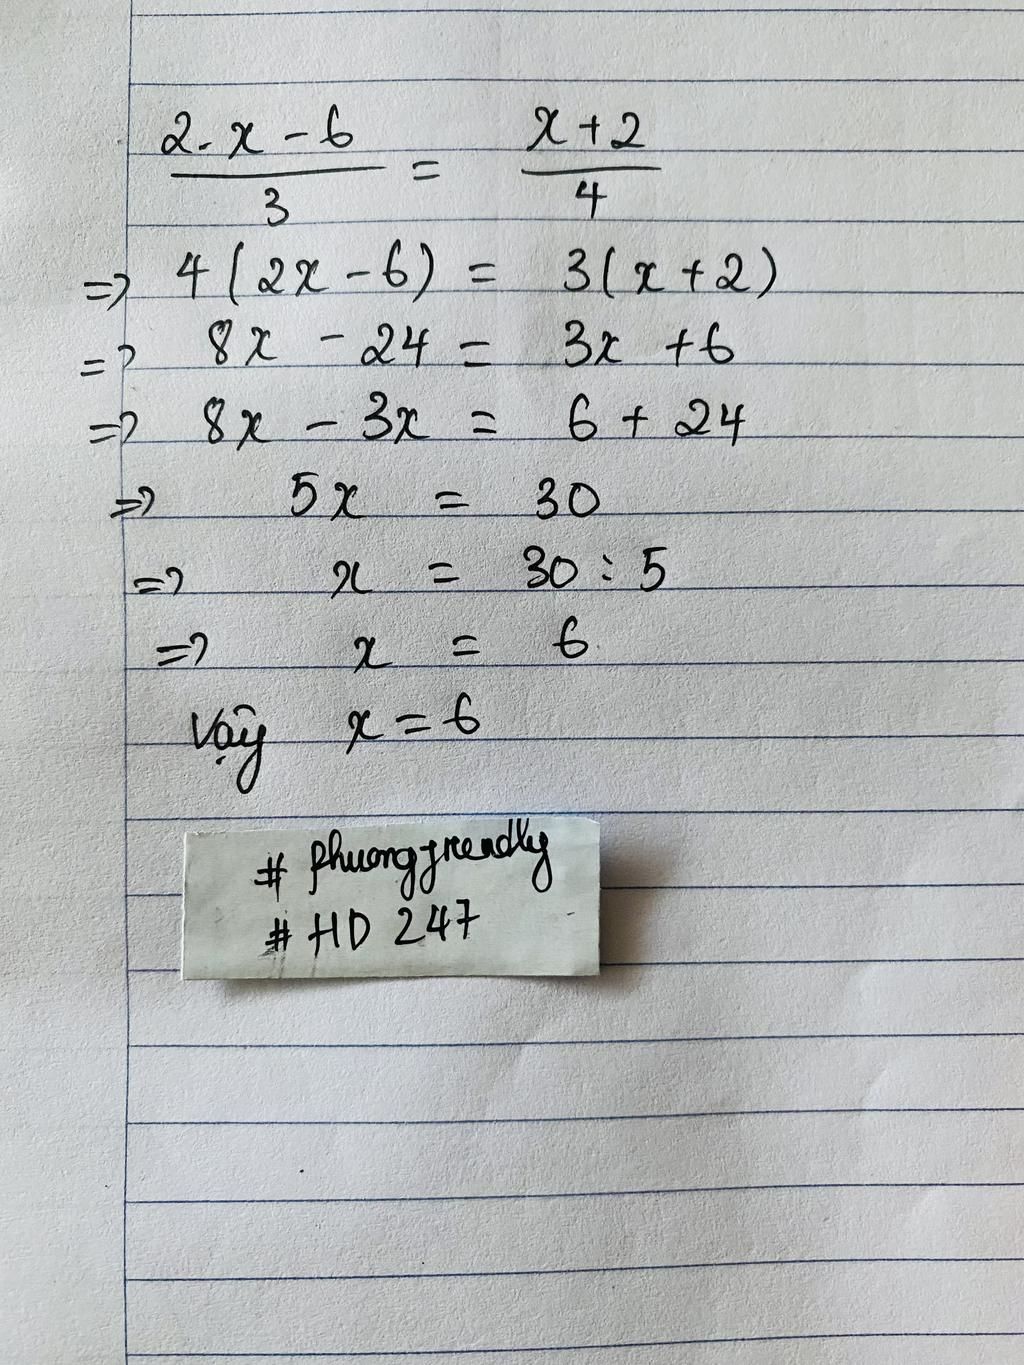 2. x - 6 / 3 = x + 2 / 4
=> 4(2x - 6) = 3(x + 2)
=> 8x - 24 = 3x + 6
=> 8x - 3x = 6 + 24
=> 5x = 30
=> x = 30 : 5
=> x = 6
Vậy x = 6
# phuongfriendly
# HD 247